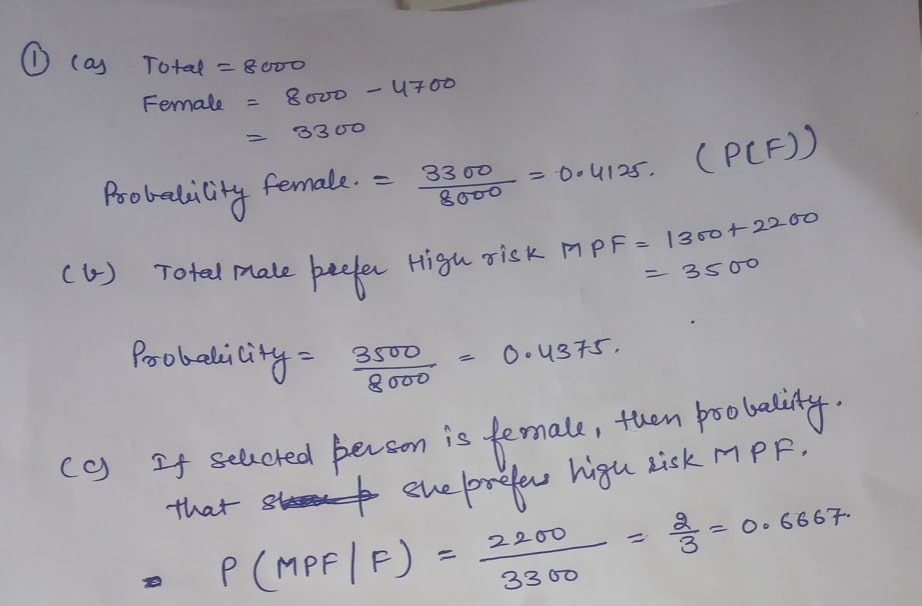 ① (a) Total = 8000
Female = 8000 - 4700
= 3300
Probability female. = 3300/8000 = 0.4125. (P(F))
(b) Total Male prefer High risk MPF = 1300 + 2200
= 3500
Probability = 3500/8000 = 0.4375.
(c) If selected person is female, then probality.
that she prefers high risk MPF.
P(MPF|F) = 2200/3300 = 2/3 = 0.6667.